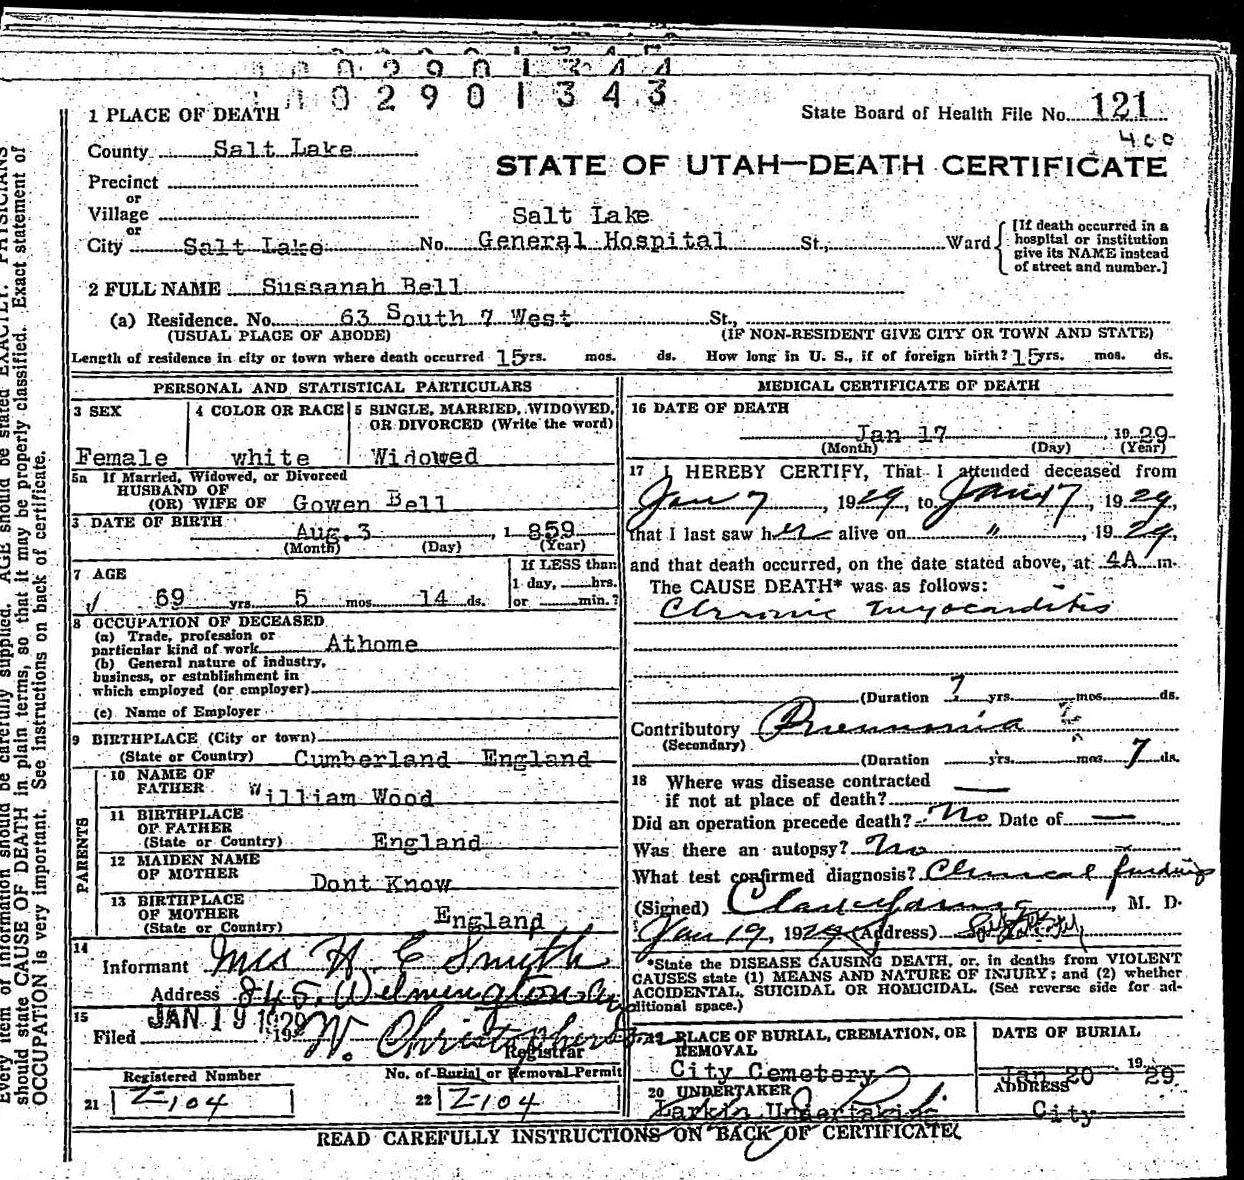 0290 1344
0290 1343
1 PLACE OF DEATH
State Board of Health File No. 121
400
County Salt Lake
STATE OF UTAH—DEATH CERTIFICATE
Precinct
or
Village
or
City Salt Lake No. Salt Lake General Hospital St., Ward
[If death occurred in a
hospital or institution
give its NAME instead
of street and number.]
2 FULL NAME Sussanah Bell
(a) Residence. No. 63 South 7 West St.,
(USUAL PLACE OF ABODE) (IF NON-RESIDENT GIVE CITY OR TOWN AND STATE)
Length of residence in city or town where death occurred 15 yrs. mos. ds. How long in U. S., if of foreign birth? 15 yrs. mos. ds.
PERSONAL AND STATISTICAL PARTICULARS
3 SEX
Female
4 COLOR OR RACE
white
5 SINGLE, MARRIED, WIDOWED,
OR DIVORCED (Write the word)
Widowed
5a If Married, Widowed, or Divorced
HUSBAND OF
(OR) WIFE OF Gowen Bell
3 DATE OF BIRTH
Aug. 3, 1859
(Month) (Day) (Year)
7 AGE
69 yrs. 5 mos. 14 ds.
If LESS than
1 day, hrs.
or min.?
8 OCCUPATION OF DECEASED
(a) Trade, profession or
particular kind of work Athome
(b) General nature of industry,
business, or establishment in
which employed (or employer)
(c) Name of Employer
9 BIRTHPLACE (City or town)
(State or Country) Cumberland England
PARENTS
10 NAME OF
FATHER William Wood
11 BIRTHPLACE
OF FATHER
(State or Country) England
12 MAIDEN NAME
OF MOTHER Dont Know
13 BIRTHPLACE
OF MOTHER
(State or Country) England
14
Informant Mrs H E Smyth
Address 845 Wilmington Av
15
Filed JAN 19 1929 192 W. Christopherson
Registrar
Registered Number No. of Burial or Removal Permit
21 Z-104 22 Z-104
MEDICAL CERTIFICATE OF DEATH
16 DATE OF DEATH
Jan 17 1929
(Month) (Day) (Year)
17 I HEREBY CERTIFY, That I attended deceased from
Jan 7, 1929, to Jan 17, 1929,
that I last saw her alive on ", 1929,
and that death occurred, on the date stated above, at 4A m.
The CAUSE DEATH* was as follows:
Chronic myocarditis
(Duration ? yrs. mos. ds.
Contributory Pneumonia
(Secondary)
(Duration yrs. mos. 7 ds.
18 Where was disease contracted
if not at place of death? —
Did an operation precede death? No Date of —
Was there an autopsy? No
What test confirmed diagnosis? Clinical findings
(Signed) , M. D.
Jan 19, 1929 (Address)
*State the DISEASE CAUSING DEATH, or, in deaths from VIOLENT
CAUSES state (1) MEANS AND NATURE OF INJURY; and (2) whether
ACCIDENTAL, SUICIDAL OR HOMICIDAL. (See reverse side for ad-
ditional space.)
PLACE OF BURIAL, CREMATION, OR
REMOVAL
City Cemetery
DATE OF BURIAL
Jan 20 1929
20 UNDERTAKER
Larkin Undertaking
ADDRESS
City
READ CAREFULLY INSTRUCTIONS ON BACK OF CERTIFICATE
should state CAUSE OF DEATH in plain terms, so that it may be properly classified. Exact statement of
OCCUPATION is very important. See instructions on back of certificate.